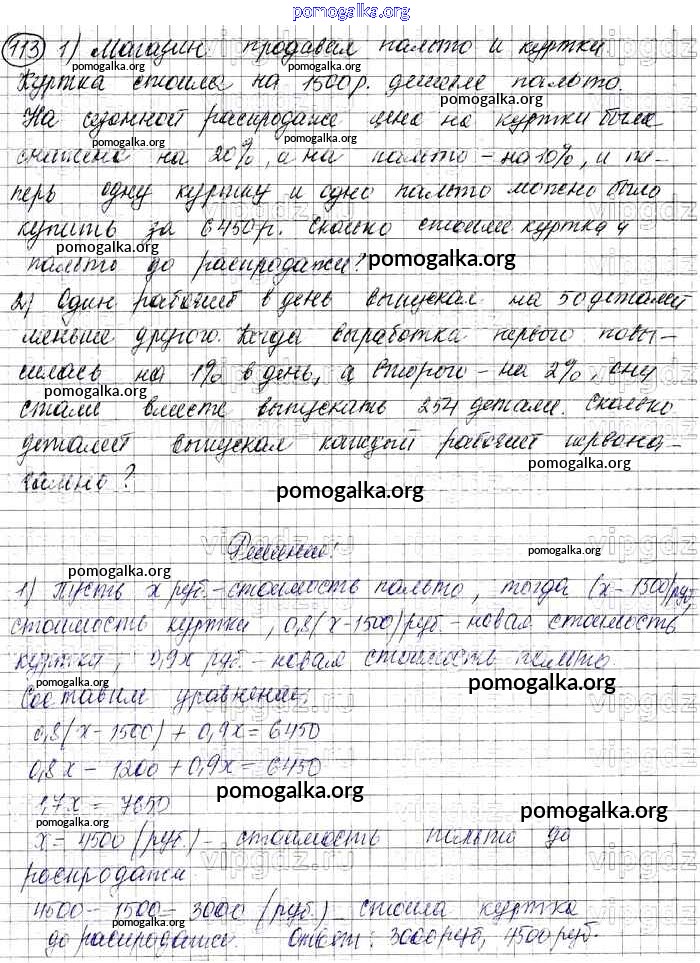 pomogalka.org
113 1) Магазин продавал пальто и куртки.
pomogalka.org
Куртка стоила на 1500 р. дешевле пальто.
pomogalka.org
На сезонной распродаже цена на куртки была
pomogalka.org
снижена на 20%, а на пальто – на 10%, и те-
перь одну куртку и одно пальто можно было
купить за 6450 р. Сколько стоили куртка и
pomogalka.org
пальто до распродажи?
pomogalka.org
2) Один рабочий в день выпускал на 50 деталей
меньше другого. Когда выработка первого повы-
силась на 1% в день, а второго – на 2%, они
pomogalka.org
стали вместе выпускать 254 детали. Сколько
деталей выпускал каждый рабочий первона-
pomogalka.org
чально?
pomogalka.org
Решение:
pomogalka.org
pomogalka.org
1) Пусть x руб. – стоимость пальто, тогда (x – 1500) руб.
стоимость куртки, 0,8(x – 1500) руб. – новая стоимость
куртки, 0,9x руб. – новая стоимость пальто.
pomogalka.org
pomogalka.org
Составим уравнение:
0,8(x – 1500) + 0,9x = 6450
0,8x – 1200 + 0,9x = 6450
pomogalka.org
1,7x = 7650
pomogalka.org
pomogalka.org
x = 4500 (руб.) – стоимость пальто до
распродажи
pomogalka.org
4500 – 1500 = 3000 (руб.) – стоила куртка
pomogalka.org
до распродажи. Ответ: 3000 руб, 4500 руб.
vipgdz.ru